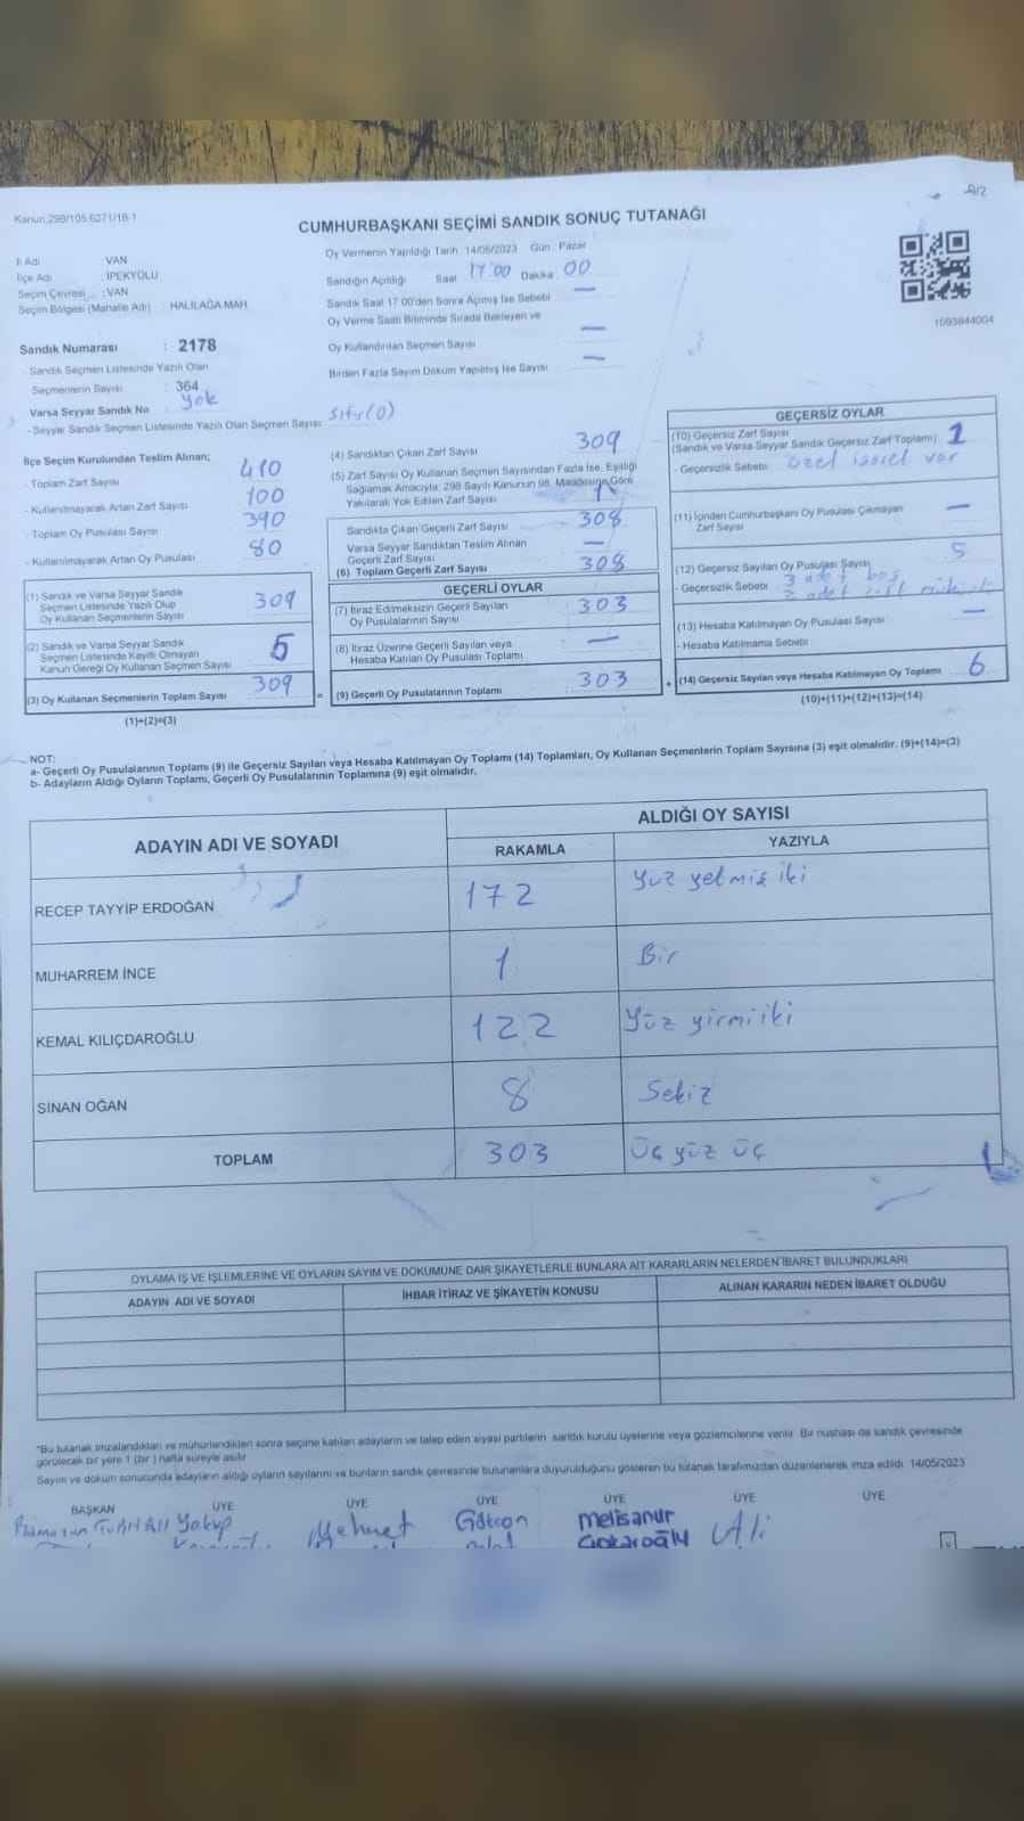 Kanun:298/105.6271/18-1
A/2
CUMHURBAŞKANI SEÇİMİ SANDIK SONUÇ TUTANAĞI
İl Adı : VAN
İlçe Adı : İPEKYOLU
Seçim Çevresi : VAN
Seçim Bölgesi (Mahalle Adı) : HALİLAĞA MAH.
Sandık Numarası : 2178
Sandık Seçmen Listesinde Yazılı Olan
Seçmenlerin Sayısı : 364
Varsa Seyyar Sandık No yok
- Seyyar Sandık Seçmen Listesinde Yazılı Olan Seçmen Sayısı sıfır(0)
Oy Vermenin Yapıldığı Tarih 14/05/2023 Gün Pazar
Sandığın Açıldığı Saat 17:00 Dakika 00
Sandık Saat 17:00'den Sonra Açılmış İse Sebebi —
Oy Verme Saati Bitiminde Sırada Bekleyen ve
Oy Kullandırılan Seçmen Sayısı —
Birden Fazla Sayım Döküm Yapılmış İse Sayısı —
1693844004
İlçe Seçim Kurulundan Teslim Alınan;
- Toplam Zarf Sayısı 410
- Kullanılmayarak Artan Zarf Sayısı 100
- Toplam Oy Pusulası Sayısı 390
- Kullanılmayarak Artan Oy Pusulası 80
(1) Sandık ve Varsa Seyyar Sandık
Seçmen Listesinde Yazılı Olup
Oy Kullanan Seçmenlerin Sayısı 309
(2) Sandık ve Varsa Seyyar Sandık
Seçmen Listesinde Kayıtlı Olmayan
Kanun Gereği Oy Kullanan Seçmen Sayısı 5
(3) Oy Kullanan Seçmenlerin Toplam Sayısı 309
(1)+(2)=(3)
(4) Sandıktan Çıkan Zarf Sayısı 309
(5) Zarf Sayısı Oy Kullanan Seçmen Sayısından Fazla İse, Eşitliği
Sağlamak Amacıyla, 298 Sayılı Kanunun 98. Maddesine Göre
Yakılarak Yok Edilen Zarf Sayısı
Sandıkta Çıkan Geçerli Zarf Sayısı 308
Varsa Seyyar Sandıktan Teslim Alınan
Geçerli Zarf Sayısı —
(6) Toplam Geçerli Zarf Sayısı 308
GEÇERLİ OYLAR
(7) İtiraz Edilmeksizin Geçerli Sayılan
Oy Pusulalarının Sayısı 303
(8) İtiraz Üzerine Geçerli Sayılan veya
Hesaba Katılan Oy Pusulası Toplamı —
= (9) Geçerli Oy Pusulalarının Toplamı 303
GEÇERSİZ OYLAR
(10) Geçersiz Zarf Sayısı
(Sandık ve Varsa Seyyar Sandık Geçersiz Zarf Toplamı) 1
- Geçersizlik Sebebi özel işaret var
(11) İçinden Cumhurbaşkanı Oy Pusulası Çıkmayan
Zarf Sayısı —
(12) Geçersiz Sayılan Oy Pusulası Sayısı 5
- Geçersizlik Sebebi 3 adet boş
2 adet çift mühür
(13) Hesaba Katılmayan Oy Pusulası Sayısı —
- Hesaba Katılmama Sebebi
+ (14) Geçersiz Sayılan veya Hesaba Katılmayan Oy Toplamı 6
(10)+(11)+(12)+(13)=(14)
NOT:
a- Geçerli Oy Pusulalarının Toplamı (9) ile Geçersiz Sayılan veya Hesaba Katılmayan Oy Toplamı (14) Toplamları, Oy Kullanan Seçmenlerin Toplam Sayısına (3) eşit olmalıdır. (9)+(14)=(3)
b- Adayların Aldığı Oyların Toplamı, Geçerli Oy Pusulalarının Toplamına (9) eşit olmalıdır.
ADAYIN ADI VE SOYADI
ALDIĞI OY SAYISI
RAKAMLA YAZIYLA
RECEP TAYYİP ERDOĞAN 172 Yüz yetmiş iki
MUHARREM İNCE 1 Bir
KEMAL KILIÇDAROĞLU 122 Yüz yirmiiki
SİNAN OĞAN 8 Sekiz
TOPLAM 303 Üç yüz üç
OYLAMA İŞ VE İŞLEMLERİNE VE OYLARIN SAYIM VE DÖKÜMÜNE DAİR ŞİKAYETLERLE BUNLARA AİT KARARLARIN NELERDEN İBARET BULUNDUKLARI
ADAYIN ADI VE SOYADI İHBAR İTİRAZ VE ŞİKAYETİN KONUSU ALINAN KARARIN NEDEN İBARET OLDUĞU
*Bu tutanak imzalandıktan ve mühürlendikten sonra seçime katılan adayların ve talep eden siyasi partilerin sandık kurulu üyelerine veya gözlemcilerine verilir. Bir nüshası da sandık çevresinde
görülecek bir yere 1 (bir) hafta süreyle asılır.
Sayım ve döküm sonucunda adayların aldığı oyların sayılarını ve bunların sandık çevresinde bulunanlara duyurulduğunu gösteren bu tutanak tarafımızdan düzenlenerek imza edildi. 14/05/2023
BAŞKAN ÜYE ÜYE ÜYE ÜYE ÜYE ÜYE
Ramazan Yakup Mehmet Gökcan Melisanur Ali